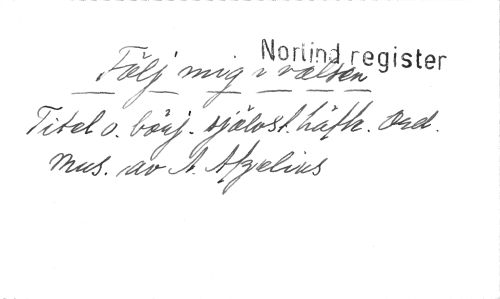 Norlind register
Följ mig i valsen
Titel o. börj. självst. häft. Ord.
mus. av A. Afzelius